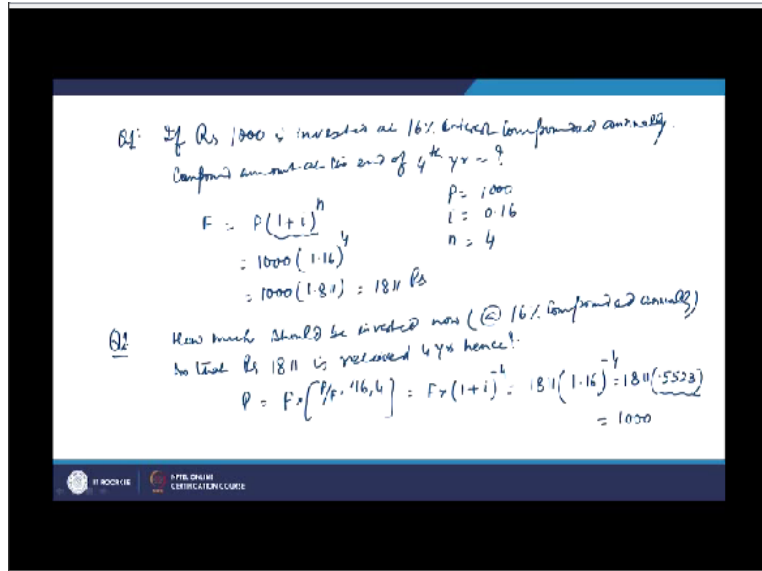 Q1: If Rs 1000 is invested at 16% interest compounded annually.
Compound amount at the end of 4th yr = ?
P = 1000
F = P(1+i)^n
i = 0.16
= 1000(1.16)^4
n = 4
= 1000(1.811) = 1811 Rs
Q2 How much should be invested now (@ 16% compounded annually)
so that Rs 1811 is received 4 yrs hence?
P = F×[P/F, 16, 4] = F×(1+i)^-4 = 1811(1.16)^-4 = 1811(.5523)
= 1000
IIT ROORKEE
NPTEL ONLINE
CERTIFICATION COURSE